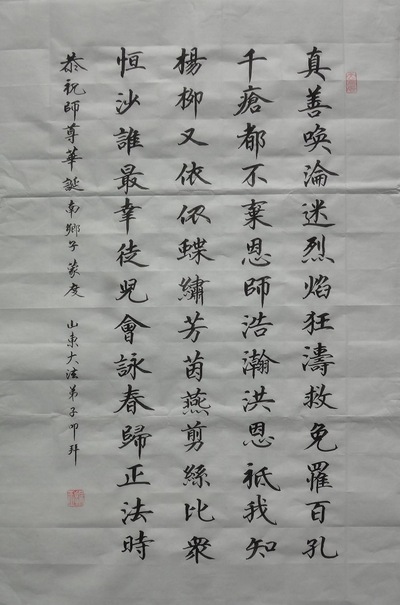 真善喚淪迷烈焰狂濤救免罹百孔
千瘡都不棄恩師浩瀚洪恩祗我知
楊柳又依依蝶繡芳茵燕剪絲比衆
恒沙誰最幸徒兒會詠春歸正法時
恭祝師尊華誕 南鄉子 蒙度 山東大法弟子叩拜